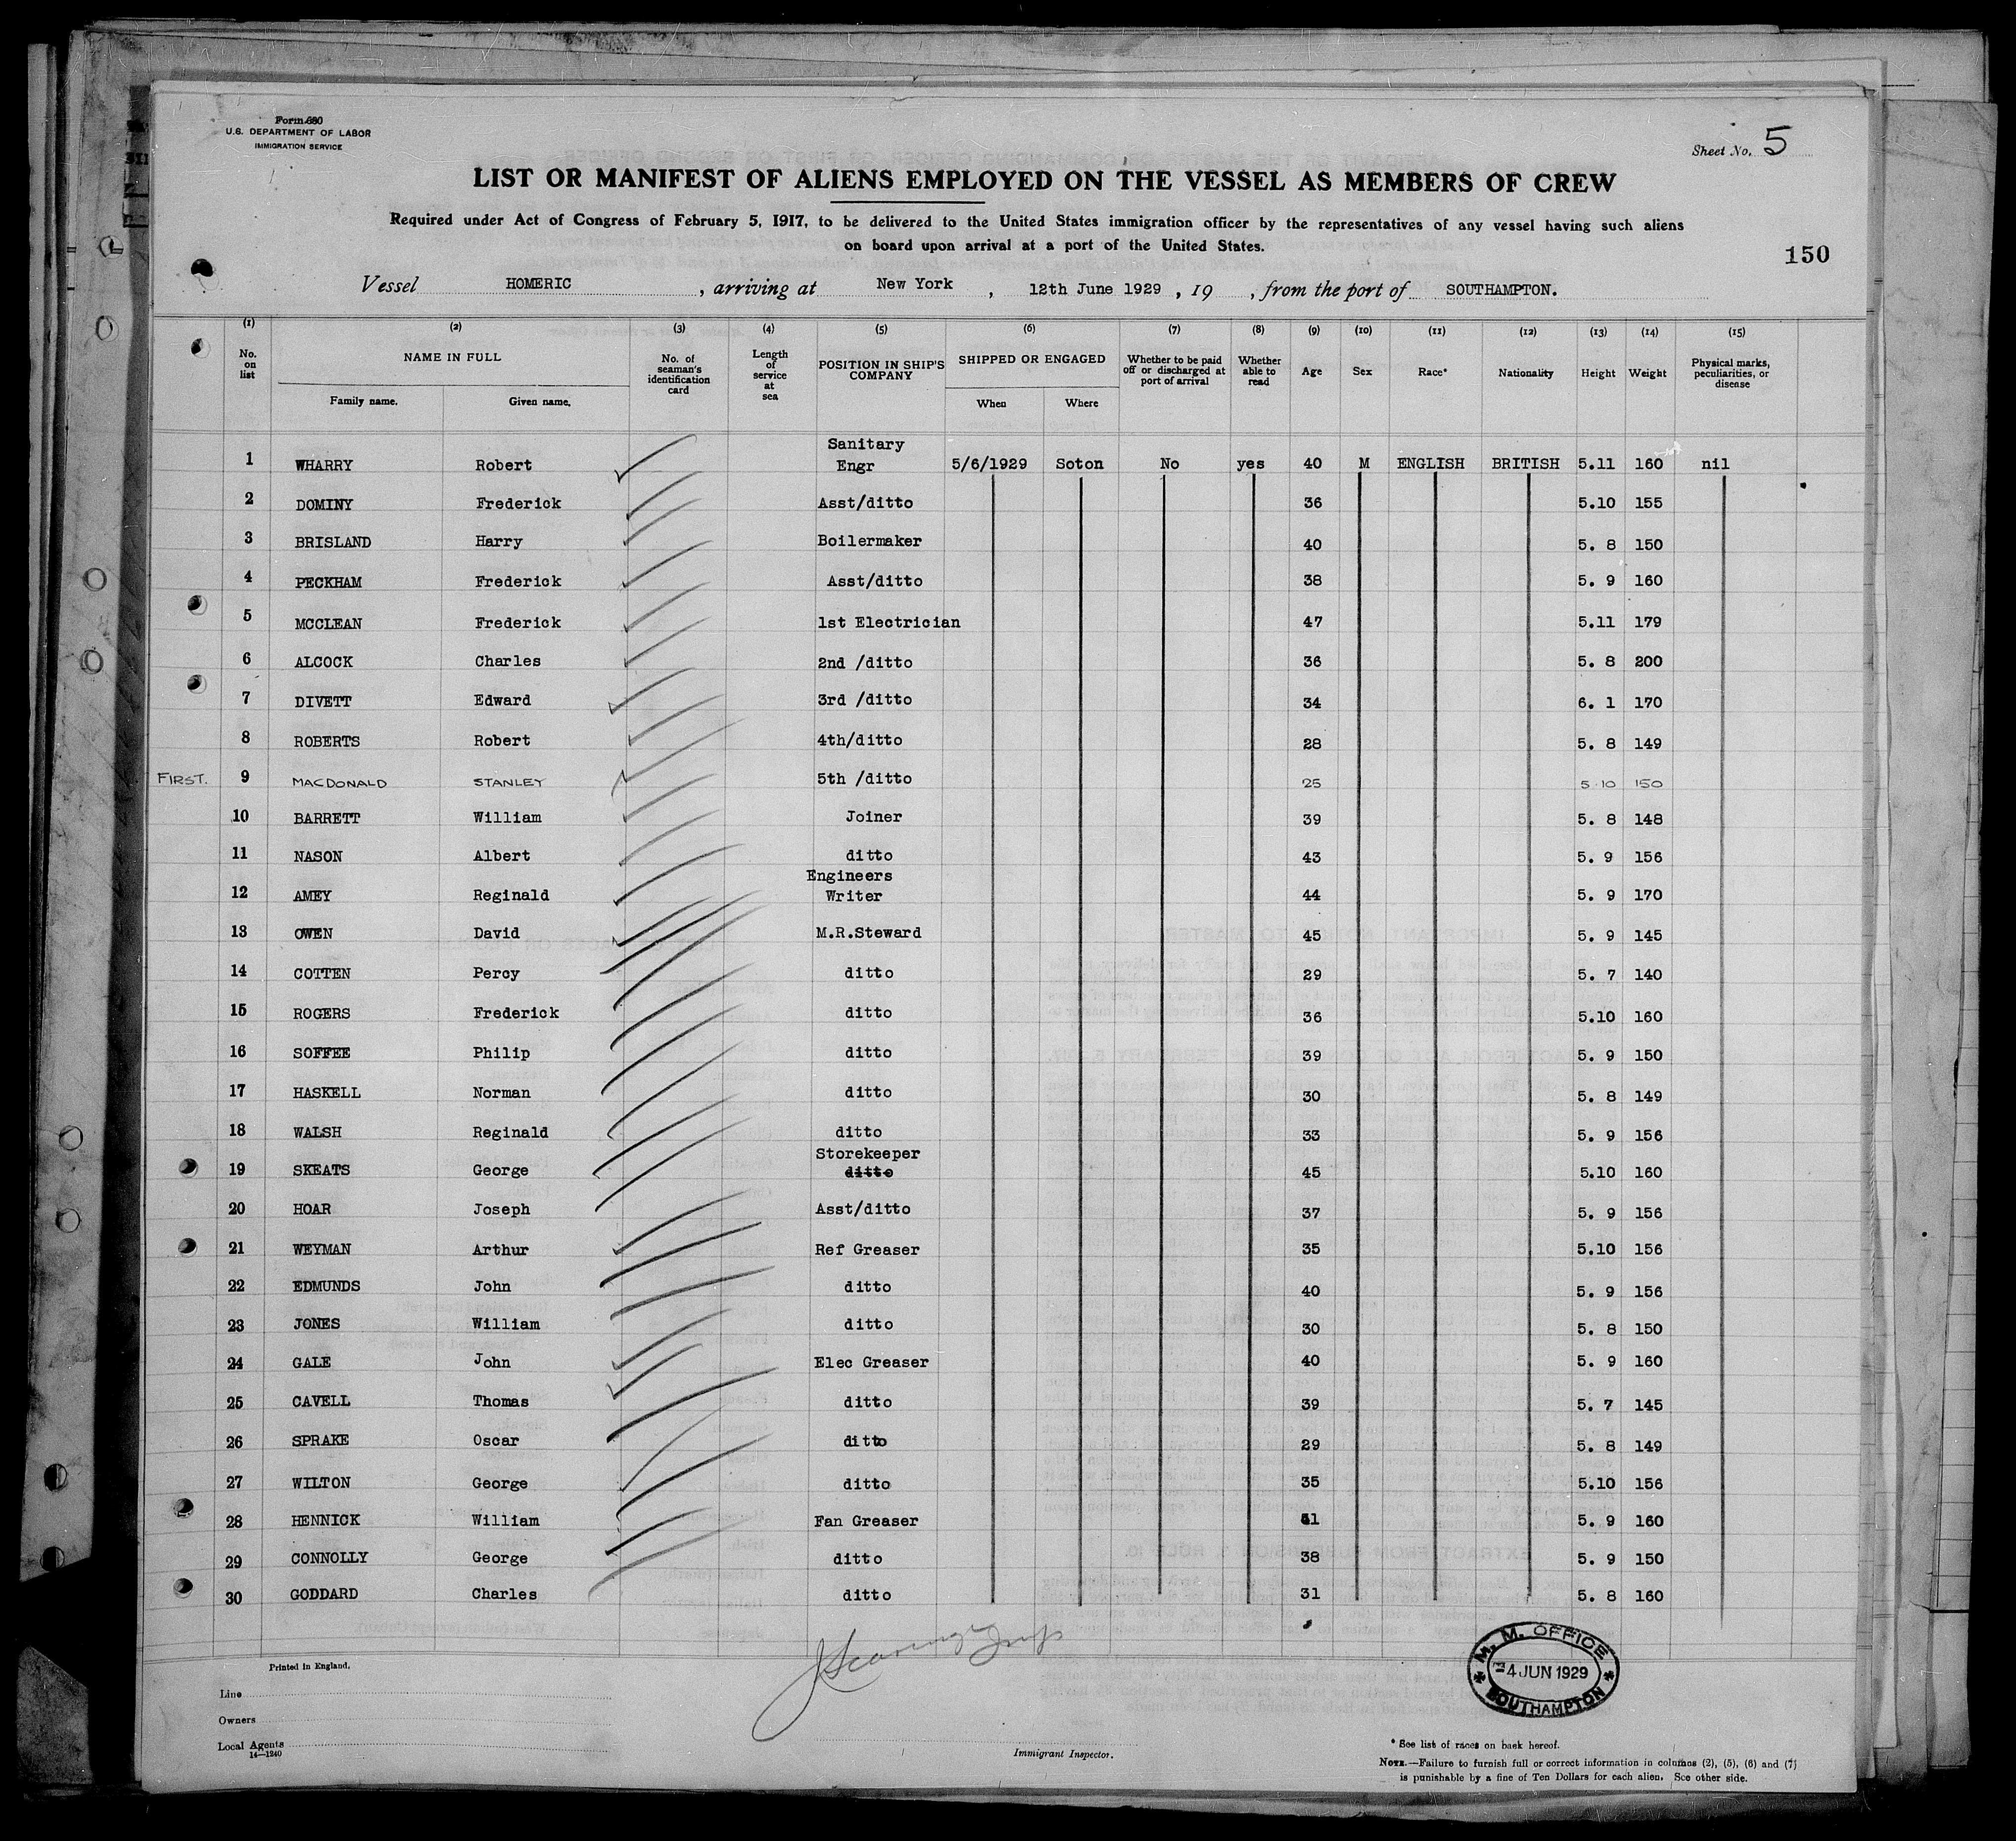 Form 680
U.S. DEPARTMENT OF LABOR
IMMIGRATION SERVICE
Sheet No. 5
LIST OR MANIFEST OF ALIENS EMPLOYED ON THE VESSEL AS MEMBERS OF CREW
Required under Act of Congress of February 5, 1917, to be delivered to the United States immigration officer by the representatives of any vessel having such aliens
on board upon arrival at a port of the United States.
150
Vessel HOMERIC , arriving at New York , 12th June 1929 , 19 , from the port of SOUTHAMPTON.
(1) (2) (3) (4) (5) (6) (7) (8) (9) (10) (11) (12) (13) (14) (15)
No. on list NAME IN FULL Family name. Given name. No. of seaman's identification card Length of service at sea POSITION IN SHIP'S COMPANY SHIPPED OR ENGAGED When Where Whether to be paid off or discharged at port of arrival Whether able to read Age Sex Race* Nationality Height Weight Physical marks, peculiarities, or disease
1 WHARRY Robert Sanitary Engr 5/6/1929 Soton No yes 40 M ENGLISH BRITISH 5.11 160 nil
2 DOMINY Frederick Asst/ditto 36 5.10 155
3 BRISLAND Harry Boilermaker 40 5. 8 150
4 PECKHAM Frederick Asst/ditto 38 5. 9 160
5 MCCLEAN Frederick 1st Electrician 47 5.11 179
6 ALCOCK Charles 2nd /ditto 36 5. 8 200
7 DIVETT Edward 3rd /ditto 34 6. 1 170
8 ROBERTS Robert 4th/ditto 28 5. 8 149
FIRST. 9 MACDONALD STANLEY 5th /ditto 25 5.10 150
10 BARRETT William Joiner 39 5. 8 148
11 NASON Albert ditto 43 5. 9 156
12 AMEY Reginald Engineers Writer 44 5. 9 170
13 OWEN David M.R.Steward 45 5. 9 145
14 COTTEN Percy ditto 29 5. 7 140
15 ROGERS Frederick ditto 36 5.10 160
16 SOFFEE Philip ditto 39 5. 9 150
17 HASKELL Norman ditto 30 5. 8 149
18 WALSH Reginald ditto 33 5. 9 156
19 SKEATS George Storekeeper ditto 45 5.10 160
20 HOAR Joseph Asst/ditto 37 5. 9 156
21 WEYMAN Arthur Ref Greaser 35 5.10 156
22 EDMUNDS John ditto 40 5. 9 156
23 JONES William ditto 30 5. 8 150
24 GALE John Elec Greaser 40 5. 9 160
25 CAVELL Thomas ditto 39 5. 7 145
26 SPRAKE Oscar ditto 29 5. 8 149
27 WILTON George ditto 35 5.10 156
28 HENNICK William Fan Greaser 41 5. 9 160
29 CONNOLLY George ditto 38 5. 9 150
30 GODDARD Charles ditto 31 5. 8 160
Printed in England.
Line
Owners
Local Agents
14—1240
Immigrant Inspector.
M. M. OFFICE
4 JUN 1929
SOUTHAMPTON
* See list of races on back hereof.
NOTE.—Failure to furnish full or correct information in columns (2), (5), (6) and (7)
is punishable by a fine of Ten Dollars for each alien. See other side.